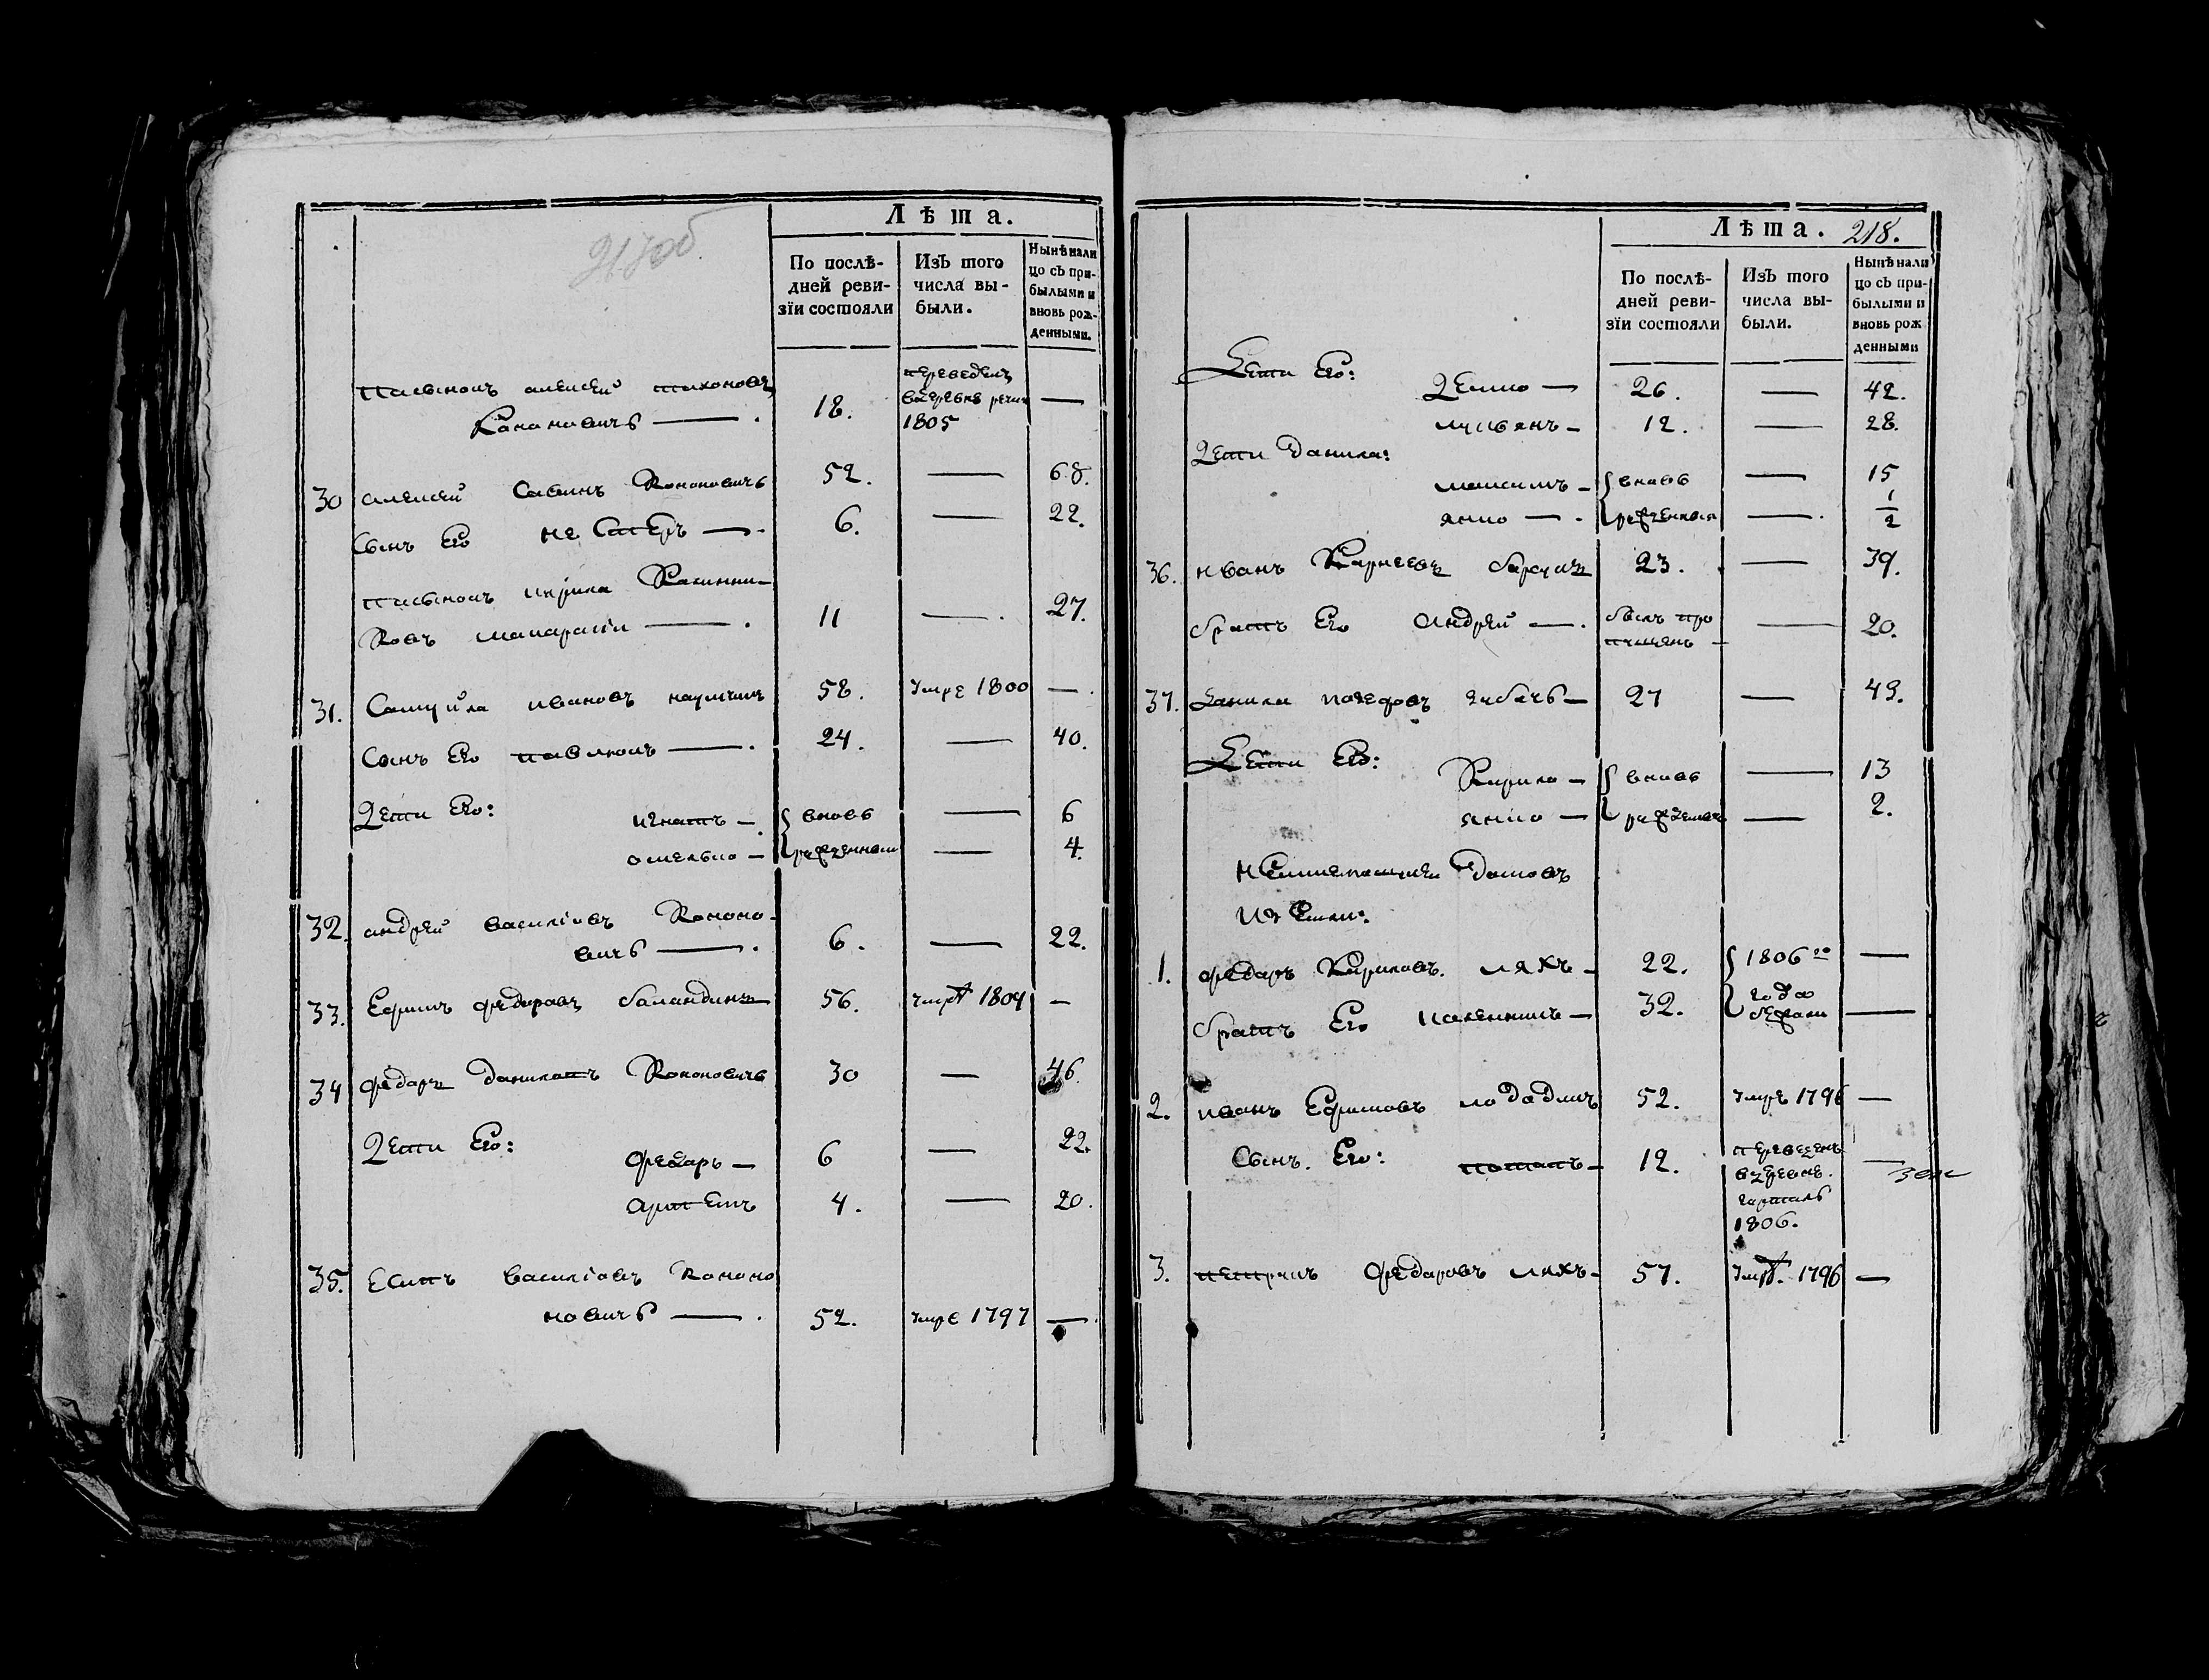 217об
Лѣта.
По послѣ-
дней реви-
зїи состояли
Изъ того
числа вы-
были.
Нынѣ нали
цо съ при-
былыми и
вновь рож-
денными.
пасынокъ алексей тихоновъ
Кононовичь — 18. переведенъ
в деревню 1805 —
30 алексей Савинъ Кононовичь 52. — 68.
Сынъ Его не Сте́ръ — 6. — 22.
пасынокъ кирила Калинни-
Ковъ 11 — 27.
31. Самуйла ивановъ наумчик 58. умре 1800 —
Сынъ Его павлюкъ — 24. — 40.
Дети Его: игнатъ — вновь — 6
омелько — рожденныи — 4.
32. андрей василіевъ Кононо-
вичь — 6. — 22.
33. Ефимъ федоровъ баландинъ 56. умре 1804 —
34 федоръ данилавъ Кононовичь 30 — 46.
Дети Его: федаръ — 6 — 22.
Артемъ 4. — 20.
35. Есипъ василіевъ Кононо
новичь — 52. умре 1797 —
Лѣта. 218.
По послѣ-
дней реви-
зїи состояли
Изъ того
числа вы-
были.
Нынѣ нали
цо съ при-
былыми и
вновь рож
денными
Дети Его: Демко — 26. — 42.
лукьянъ — 12. — 28.
Дети Данила:
максимъ — вновь — 15
янко — рожденныя — 1/2
36. иванъ Карнеевъ 23. — 39.
братъ Его Андрей — былъ про
пущенъ — 20.
37. Данила 27 — 43.
Дети Его: Кирила — вновь — 13
янко — рожденыя — 2.
неимеющии Домовъ
и земли:
1. федаръ Кириловъ ляхъ — 22. 1806го —
братъ Его — 32. года
бежали —
2. иванъ Ефимовъ 52. умре 1796 —
Сынъ Его: потапъ — 12. переведенъ
в деревню
1806. —
3. петрукъ федаровъ ляхъ — 57. умре 1796 —